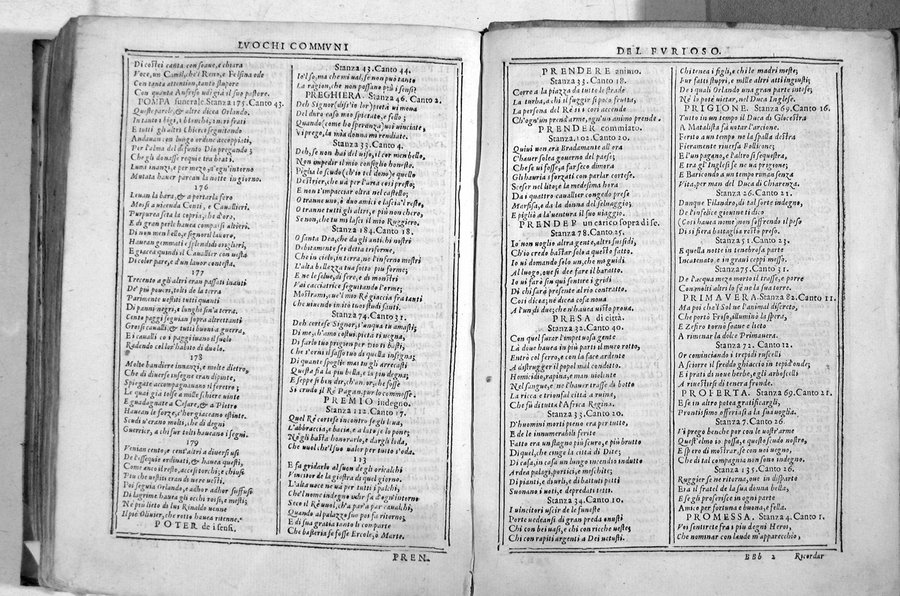 LVOCHI COMMVNI
Di costei canta con soaue, e chiara
Voce, un Camil, ch'l Reno, e Felsina ode
Con tanta attention, tanto stupore
Con quanta Anfriso udì già il suo pastore.
POMPA funerale. Stanza 175. Canto 43.
Queste parole, & altre dicea Orlando,
Tanto i bigi, i bianchi, i neri frati
E tutti gli altri Chierci, seguitando
Andauan con lungo ordine accoppiati,
Per l'alma del difunto Dio pregando;
Che gli donasse requie tra beati.
Lumi inanzi, e per mezo, e d'ogn'intorno
Mutata hauer parean la notte in giorno.
176
Leuan la bara, & a portarla foro
Messi a uicenda Conti, e Cauallieri.
Purpurea seta la copria, che d'oro,
E di gran perle hauea compassi altieri.
Di non men bello, e signoril lauoro,
Hauean gemmati e splendidi origlieri,
E giacea quindi il Cauallier con uesta
Di color pare, e d'un lauor contesta.
177
Trecento a gli altri eran passati inanti
De' più poueri, tolti de la terra
Parimente uestiti tutti quanti
Di panni negri, e lunghi sin'a terra.
Cento paggi seguian sopra altretanti
Grossi caualli, & tutti buoni a guerra,
E i caualli co i paggi iuano il suolo
Radendo col lor habito di duolo.
178
Molte bandiere innanzi, e molte dietro,
Che di diuerse insegne eran dipinte,
Spiegate accompagnauano il feretro;
Le quai già tolte a mille schiere uinte
E guadagnate a Cesare, & a Pietro
Hauean le forze, c'hor giaceano estinte.
Scudi u'erano molti, che di degni
Guerrier, a chi fur tolti haueano i segni.
179
Venian cento, e cent'altri a diuersi usi
De l'essequie ordinati, & hauea questi,
Come anco il resto, accesi torchi; e chiusi
Più che uestiti eran di nere uesti.
Poi seguia Orlando, e ad hor ad hor suffusi
Di lagrime hauea gli occhi rossi, e mesti;
Ne più lieto di lui Rinaldo uenne
Il piè Oliuier, che rotto hauea ritenne.
POTER de i sensi.
Stanza 43. Canto 44.
to'l so, ma che mi ual, se non può tanto
La ragion, che non possano più i sensi?
PREGHIERA. Stanza 46. Canto 2.
Deh Signor (diss'io lor) pietà ui moua
Del duro caso mio spietato, e fello;
Quando (come ho speranza) uoi uinciate,
Vi prego, la mia donna mi rendiate.
Stanza 33. Canto 4.
Deh, se non hai del uiso, il cor men bello,
Non impedir il mio consiglio honesto.
Piglia lo scudo (ch'io tel dono) e quello
Destrier, che uà per l'aria così presto;
E non t'impacciar oltra nel castello;
O tranne uno, ò duo amici e lascia'l resto,
O tranne tutti gli altri, e più non chero,
Se non, che tu mi lasci il mio Ruggiero.
Stanza 184. Canto 18.
O santa Dea, che da gli antichi nostri
Debitamente sei detta triforme,
Che in cielo, in terra, ne l'inferno mostri
L'alta bellezza tua sotto più forme;
E ne le selue, di fere, e di mostri
Vai cacciatrice seguitando l'orme;
Mostrami, oue'l mio Rè giaccia fra tanti
Che uiuendo imitò tuoi studi santi.
Stanza 74. Canto 31.
Deh cortese Signor, s'unqua tu amasti,
Di me, ch'amo costui pietà ti uegna,
Di farlo tuo prigion per Dio ti basti;
Che s'orni il sasso tuo di quella insegna;
Di quante spoglie mai tu gli arrecasti
Questa sia la più bella, e la più degna;
E seppe sì ben dir, ch'ancor, che fosse
Sì crudo il Rè Pagan, pur lo commosse.
PREMIO indegno.
Stanza 112. Canto 17.
Quel Rè cortese incontro se gli leua,
L'abbraccia, e bacia, e a lato se lo pone;
Ne gli basta honorarlo, e dargli loda,
Che uuol che'l suo ualor per tutto s'oda.
113
E fa gridarlo al suon de gli oricalchi
Vincitor de la giostra di quel giorno.
L'alta uoce ne uà per tutti i palchi,
Che'l nome indegno udir fa d'ogn'intorno
Seco il Rè uuol, ch'a par a par caualchi,
Quando al palazzo suo poi fa ritorno;
E di sua gratia tanto li comparte
Che basteria se fosse Ercole, ò Marte.
PREN.
DEL FVRIOSO.
PRENDERE animo.
Stanza 23. Canto 18.
Corre a la piazza da tutte le strade
La turba, a chi il fuggir sì poco frutta,
La persona del Rè sì i cori accende
Ch'ogn'un prend'arme, ogn'un animo prende.
PRENDER commiato.
Stanza 102. Canto 20.
Quiui non era Bradamante all'ora
C'hauer solea gouerno del paese;
Che se ui fosse, a far seco dimora
Gli hauria sforzati con parlar cortese.
Sceser nel lito; e la medesima hora
Da i quattro cauallier congedo prese
Marfisa, e da la donna del seluaggio;
E pigliò a la uentura il suo uiaggio.
PRENDER un carico sopra di se.
Stanza 78. Canto 25.
Io non uoglio altra gente, altri sussidi,
Ch'io credo bastar solo a questo fatto.
Io ui domando solo un, che mi guidi
Al luogo, oue si dee fare il baratto.
Io ui farò sin qui sentire i gridi
Di chi sarà presente al rio contratto.
Così dicea; ne dicea cosa noua
A l'un di duo; che n'hauea uista proua.
PRESA di città.
Stanza 32. Canto 40.
Con quel furor l'impetuosa gente
Là doue hauea in più parti il muro rotto,
Entrò col ferro, e con la face ardente
A distrugger il popol mal condotto.
Homicidio, rapina, e man uiolente
Nel sangue, e ne l'hauer trasse di botto
La ricca e trionfal città a ruina,
Che fu di tutta l'Africa Regina.
Stanza 33. Canto 20.
D'huomini morti pieno era per tutto,
E de le innumerabili ferite
Fatto era un stagno più scuro, e più brutto
Di quel, che cinge la città di Dite;
Di casa, in casa un lungo incendio indutto
Ardea palagi, portici, e meschite;
Di pianti, e d'urli, e di battuti petti
Suonano i uoti, e depredati tetti.
Stanza 34. Canto 10.
I uincitori uscir de le funeste
Porte uedeansi di gran preda onusti
Chi con bei uasi, e chi con ricche ueste;
Chi con rapiti argenti a Dei uetusti.
Chi tenea i figli, e chi le madri meste;
Fur fatti stupri, e mille altri atti ingiusti;
De i quali Orlando una gran parte intese;
Nè lo potè uietar, nel Duca Inglese.
PRIGIONE. Stanza 69. Canto 16.
Tutto in un tempo il Duca di Glocestra
A Matalista fà uotar l'arcione.
Ferito a un tempo ne la spalla destra
Fieramente riuersa Follicone;
E l'un pagano, e l'altro si sequestra,
E tra gl'Inglesi se ne uà prigione;
E Baricondo a un tempo riman senza
Vita, per man del Duca di Chiarenza.
Stanza 26. Canto 21.
Dunque Filandro, di tal sorte indegno,
De l'infelice giouene ti dico
(Così hauea nome) non soffrendo il peso
Di sì fiera battaglia restò preso.
Stanza 51. Canto 23.
E quella notte in tenebrosa parte
Incatenato, e in graui ceppi messo.
Stanza 75. Canto 31.
De l'acqua mezo morto il trasse, e porre
Con molti altri lo fè ne la sua torre.
PRIMAVERA. Stanza 82. Canto 11.
Ma poi che'l Sol ne l'animal discreto,
Che portò Friso, illuminò la sfera,
E Zefiro tornò soaue e lieto
A rimenar la dolce Primauera.
Stanza 72. Canto 12.
Or cominciando i trepidi ruscelli
A sciorre il freddo ghiaccio in tepid'onde;
E i prati di noue herbe, e gli arboscelli
A riuestirsi di tenera fronde.
PROFERTA. Stanza 69. Canto 21.
E se in altro potea gratificargli,
Prontissimo offeriosi a la sua uoglia.
Stanza 7. Canto 26
Vi prego benche por con le uostr'arme
Quest'elmo io possa, e questo scudo nostro,
E spero di mostrar, se con uoi uegno,
Che di tal compagnia non sono indegno.
Stanza 135. Canto 26.
Ruggier se ne ritorna, oue in disparte
Era il fratel de la sua donna bella,
E se gli profferisce in ogni parte
Amico per fortuna e buona, e fella.
PROMESSA. Stanza 4. Canto 1.
Voi sentirete fra i più degni Heroi,
Che nominar con laude m'apparecchio,
BBb 2 Ricordar